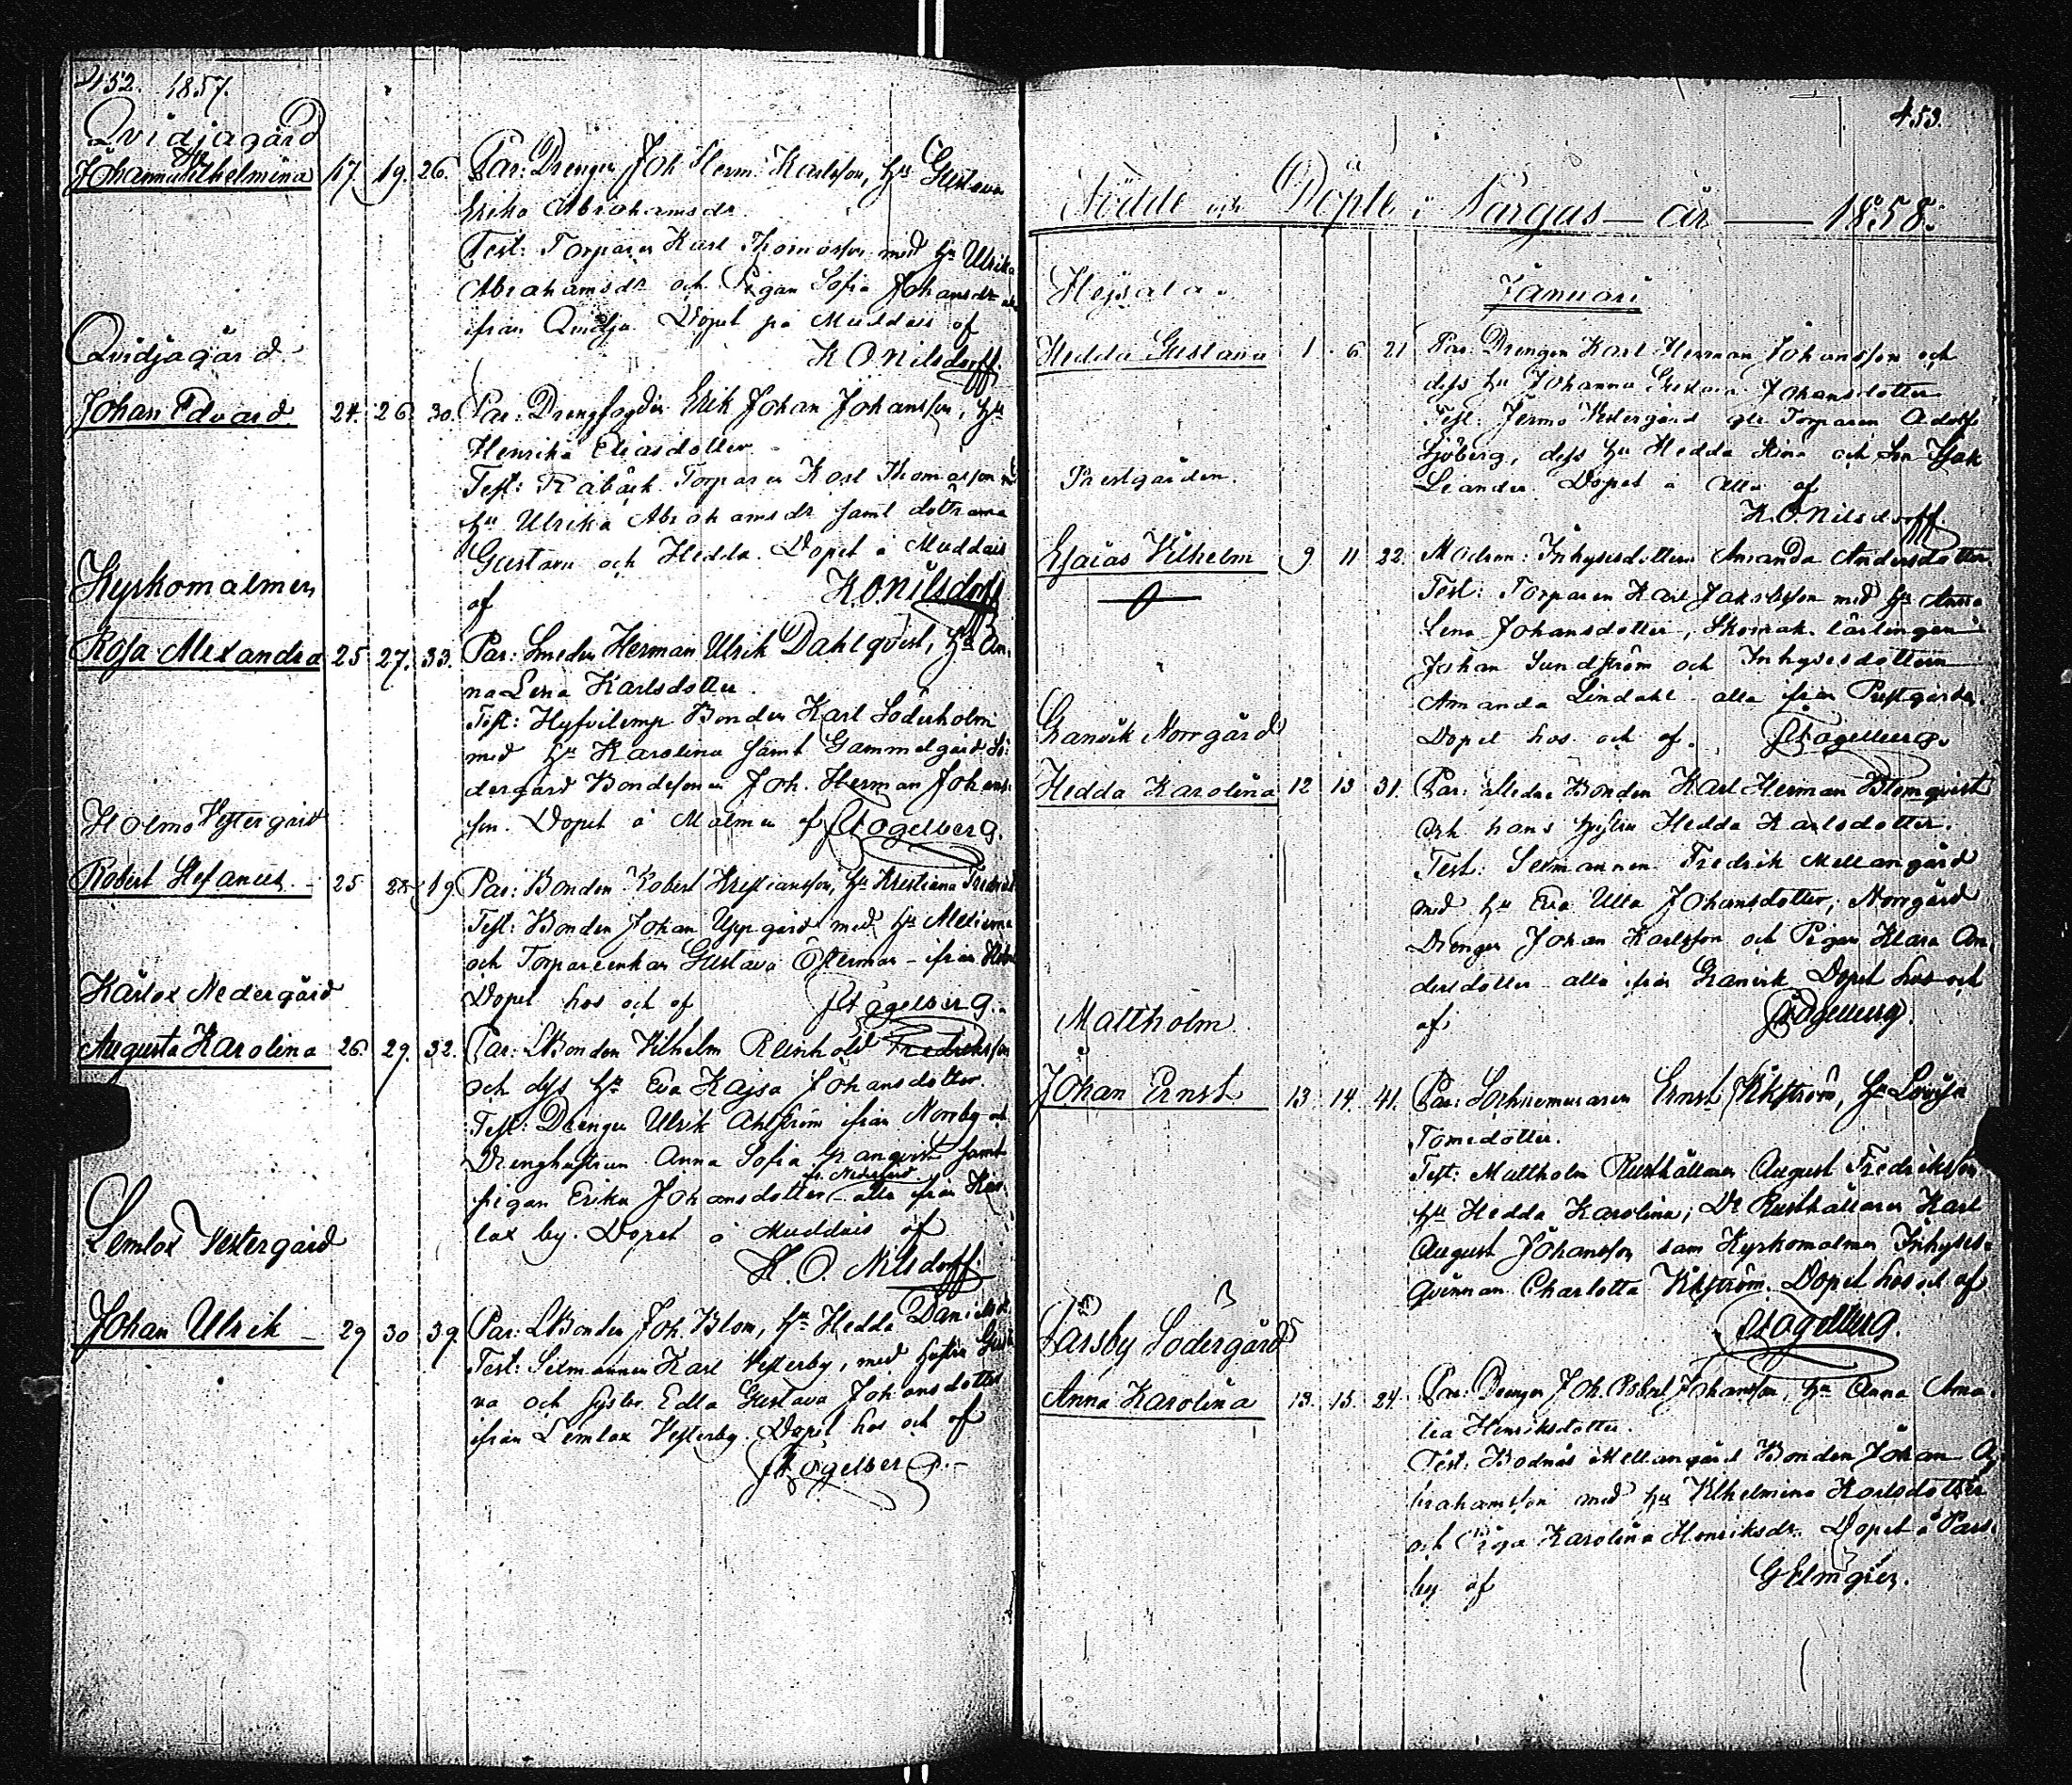 452. 1857.
Qvidjagård
Johanna Vilhelmina 17. 19. 26. Par: Drengen Joh Herm. Karlsson, hu Gustava
Erika Abrahamsdr
Test: Torparen Karl Thomasson med hu Ulrika
Abrahamsdr och Pigan Sofia Johansdr
ifrån Qvidja Döpet på Muddais af
K O Nilsdorff.
Qvidjagård
Johan Edvard. 24. 26. 30. Par: Drengfogden Erik Johan Johansson, hu
Henrika Eliasdotter
Test: Råbäck Torparen Karl Thomasson
hu Ulrika Abrahamsdr samt döttrarna
Gustava och Hedda. Döpet å Muddais
af K O Nilsdorff
Kyrkomalmen
Rosa Alexandra 25 27. 33. Par: Smeden Herman Ulrik Dahlqvist, hu An-
na Lena Karlsdotter.
Test: Hyfvilemp Bonden Karl Söderholm
med hu Karolina samt Gammelgård Sö-
dergård Bondesonen Joh. Herman Johans-
son. Döpet å Malmen af Fogelberg.
Holmo Vestergård
Robert Stefanus 25 28 19. Par: Bonden Robert Kristiansson, hu Kristiana
Test: Bonden Johan Uppgård med hu
och Torpareenkan Gustava Österman ifrån
Döpet hos och af Fogelberg.
Kårlax Nedergård
Augusta Karolina 26. 29. 32. Par: LBonden Vilhelm Reinhold Fredriksson
och dess hu Eva Kajsa Johansdotter.
Test: Drengen Ulrik Ahlström ifrån Norrby
Drenghustrun Anna Sofia Granqvist samt
pigan Erika Johansdotter alla ifrån Kår-
lax by. Döpet å Muddais af
K. O. Nilsdorff.
Lemlax Vestergård
Johan Ulrik 29 30 39. Par: LBonden Joh. Blom, hu Hedda Danielsdr
Test: Sexmannen Karl Vesterby, med hustru Gusta-
va och syster Edla Gustava Johansdotter
ifrån Lemlax Vesterby. Döpet hos och af
Fogelberg.
453.
Födde och Döpte i Pargas år 1858.
Januari
Hejsala.
Hedda Gustava 1 6 21 Par: Drengen Karl Herman Johansson och
dess hu Johanna Gustava Johansdotter
Test: Jermo Vestergård Torparen Adolf
Sjöberg, dess hu Hedda Stina och Isak
Leander. Döpet å af
K. O. Nilsdorff.
Prestgården.
Esaias Vilhelm 9 11 22. Modren: Inhysesdottern Amanda Andersdotter.
Test: Torparen Karl Jakobsson med hu Anna
Lena Johansdotter, Skomak. lärlingen
Johan Sundström och Inhysesdottern
Amanda Lindahl alla ifrån Prestgården.
Döpet hos och af. Fogelberg.
Granvik Norrgård
Hedda Karolina 12 13 31. Par: Bonden Karl Herman Blomqvist
och hans hustru Hedda Karlsdotter.
Test: Sexmannen Fredrik Mellangård
med hu Eva Ulla Johansdotter, Norrgård
Drengen Johan Karlsson och Pigan Klara An-
dersdotter alla ifrån Granvik Döpet hos och
af Fogelberg.
Mattholm
Johan Ernst 13 14. 41. Par: Ernst Vikström, hu Lovisa
Tomedotter.
Test: Mattholm Rusthållaren August Fredriksson
hu Hedda Karolina; Do Rusthållaren Karl
August Johansson sam Kyrkomalmen Inhyses-
qvinnan Charlotta Vikström. Döpet hos och af
Fogelberg.
Pärsby Södergård
Anna Karolina 13. 15. 24. Par: Drengen Joh. Robert Johansson, hu Anna Ama-
lia Henriksdotter.
Test: Bodnäs Mellangård Bonden Johan A-
brahamsson med hu Vilhelmina Karlsdotter
och Piga Karolina Henriksdr. Döpet å Pärs-
by af G Elmgren.